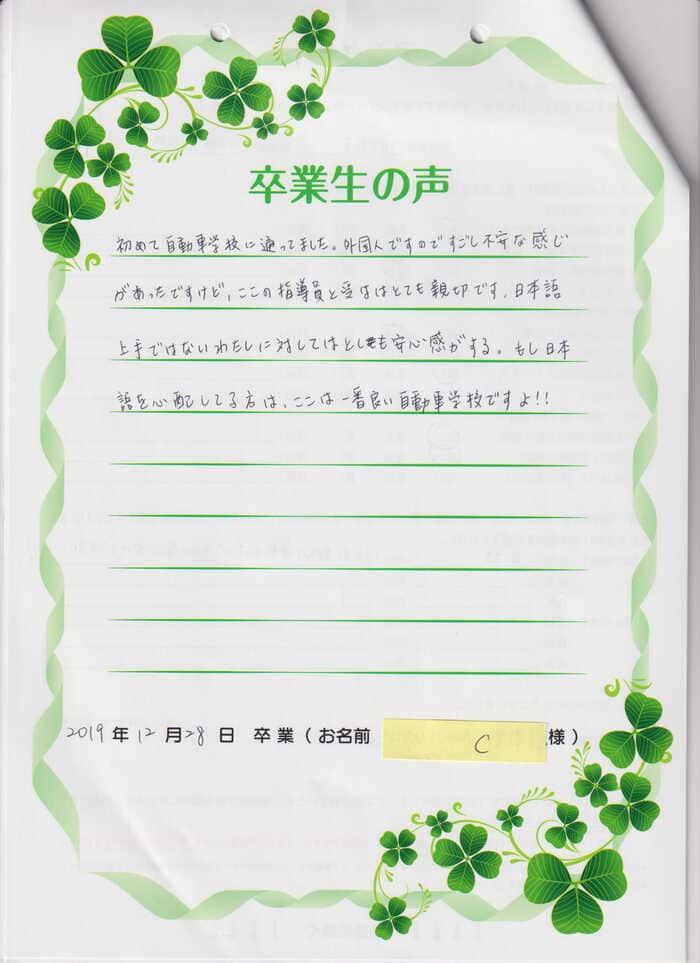 卒業生の声
初めて自動車学校に通ってました。外国人ですのですごし不安な感じ
があったですけど、ここの指導員と受付はとても親切です、日本語
上手ではないわたしに対してはとても安心感がする。もし日本
語を心配してる方は、ここは一番良い自動車学校ですよ!!
2019年12月28日 卒業(お名前 C 様)